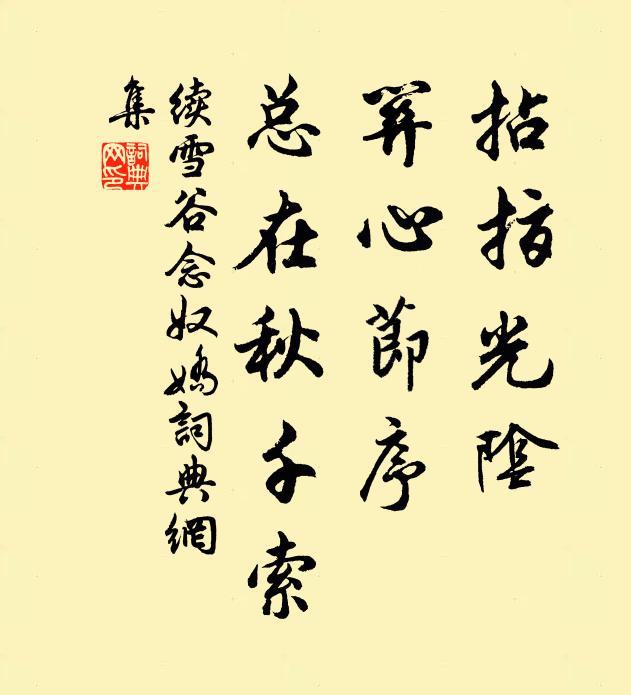 拈指光陰
筭心節序
总在秋千索
續雪谷念奴嬌詞典網
集
詞典網印